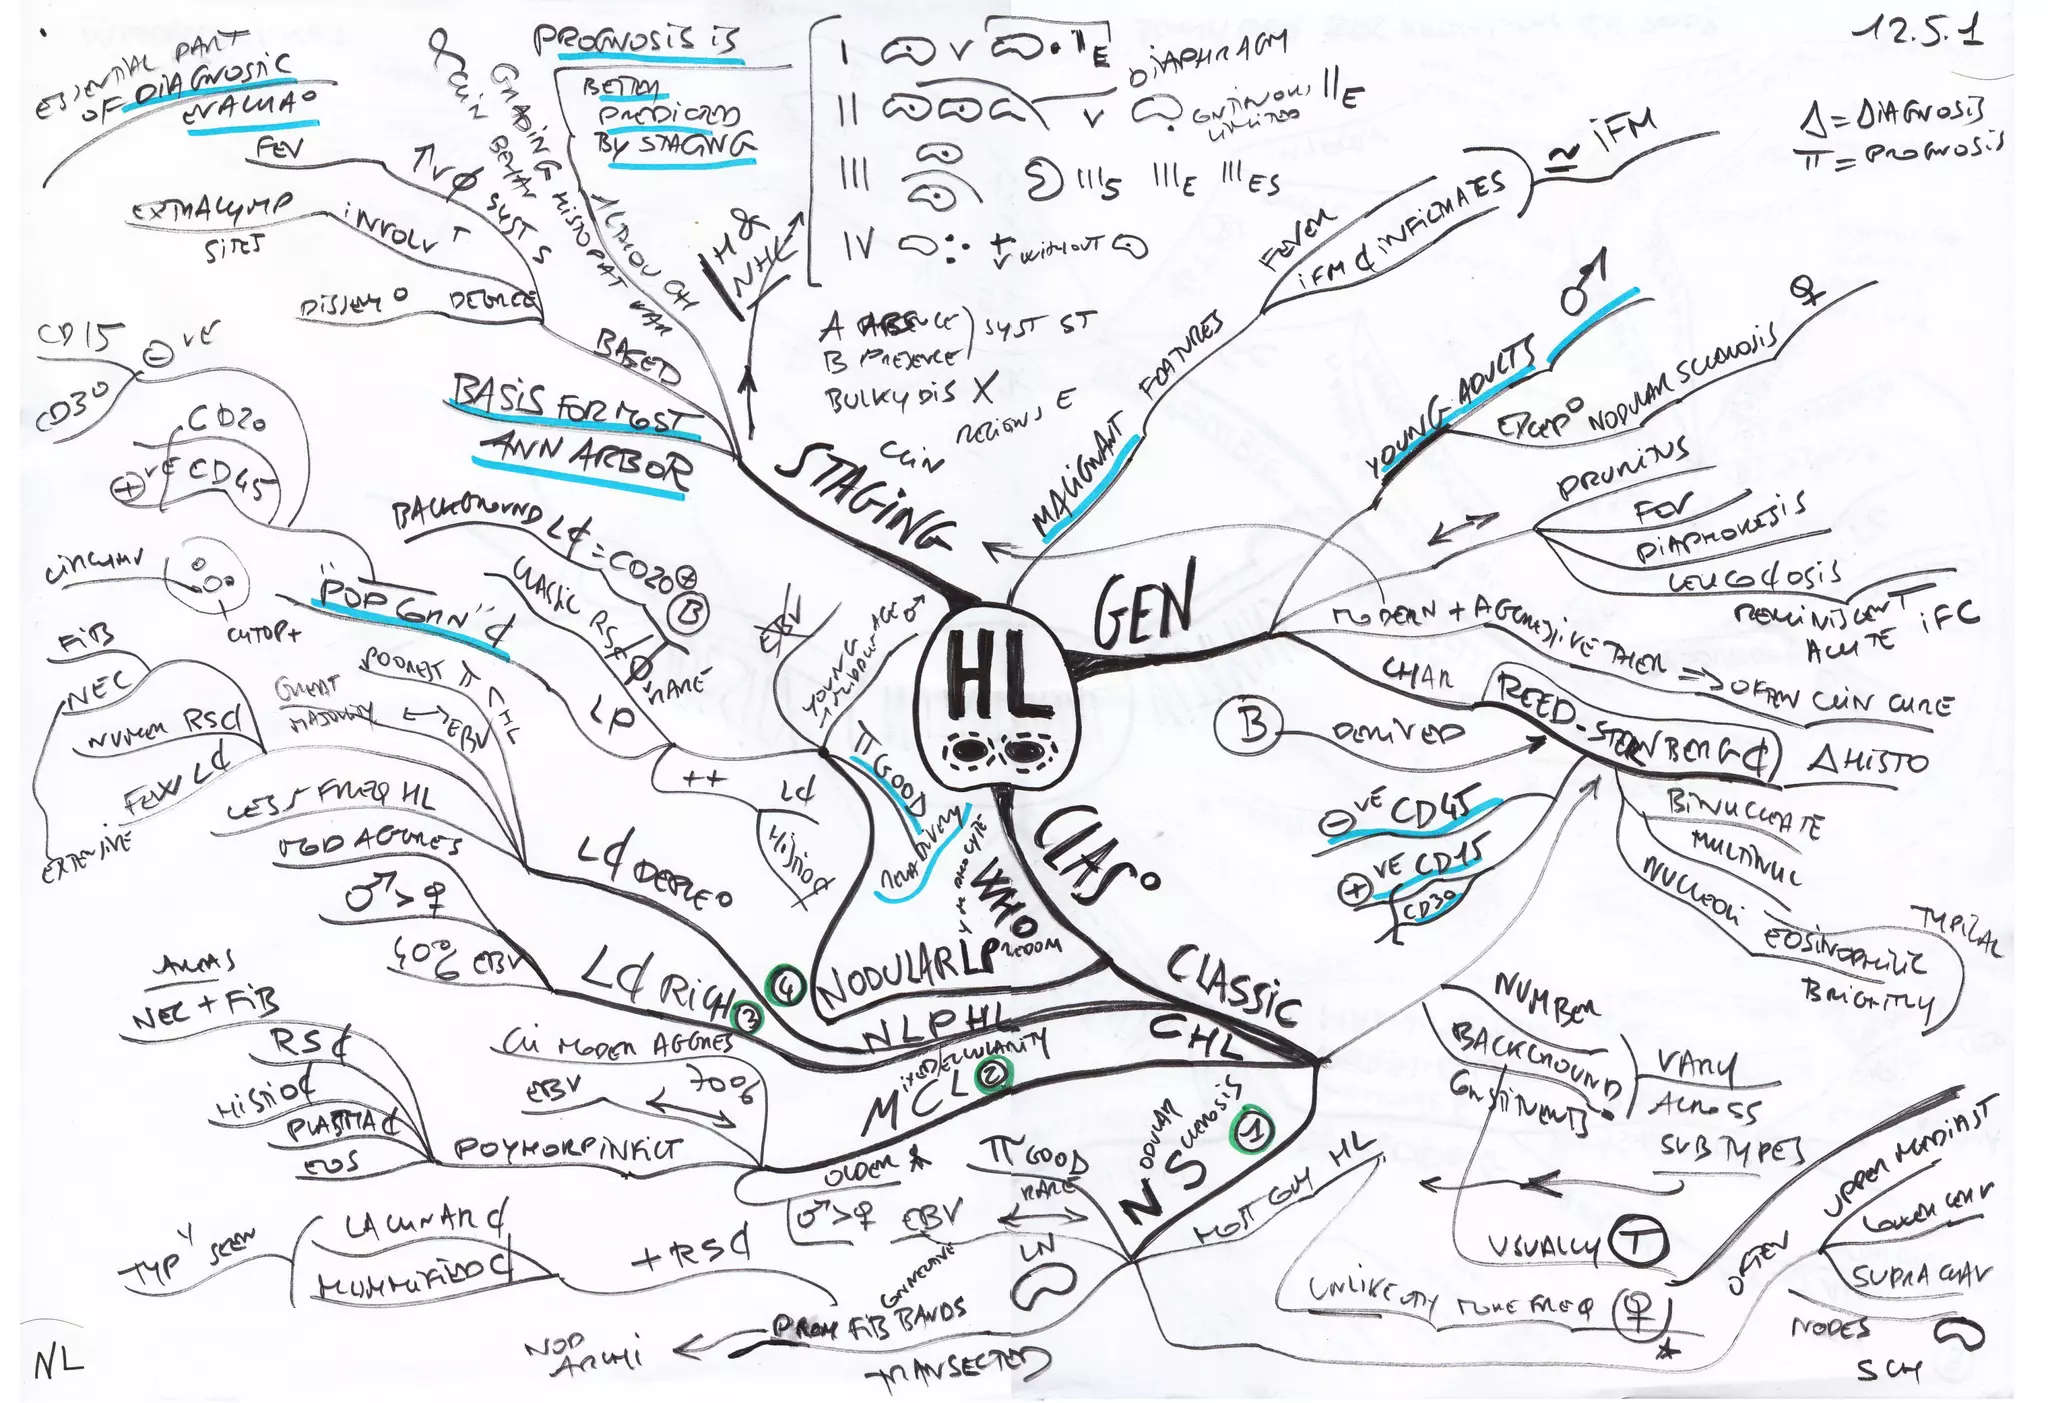 12.5.1
Δ = DIAGNOSIS
π = PROGNOSIS
ESSENTIAL PART
OF DIAGNOSTIC
EVALUA°
FEV
EXTRALYMP
SITES
INVOLV T
DISSEM°
DEGREE
BASED
↑ V Ø SYST S
& CLIN BEHAV
GRADING HISTOPAT VAR
ALTHOUGH
PROGNOSIS IS
BETTER
PREDICTED
BY STAGING
BASIS FOR MOST
ANN ARBOR
H &
NHL
I
V
II E
DIAPHRAGM
II
V
CONTINUOUS
LIMITED
II E
III
III S III E III ES
IV
+
V WITHOUT
A ABSENCE
B PRESENCE
SYST ST
BULKY DIS X
REGIONS E
CLIN
STAGING
HL
GEN
MALIGNANT
FEATURES
FEVER
IFM ¢ INFILTRATES
≅ IFM
YOUNG ADULTS ♂
EXCEP° NODULAR SCLEROSIS ♀
PRURITUS
FEV
DIAPHORESIS
LEUCO¢OSIS
REMINISCENT
ACUTE IFC
MODERN + AGGRESSIVE THER ⇒ OFTEN CLIN CURE
CHAR
REED-STERNBERG ¢
Δ HISTO
B DERIVED
⊖ VE CD45
⊕ VE CD15
CD30
BINUCLEATE
MULTINUC
NUCLEOLI
EOSINOPHILIC
BRIGHTLY
TYPICAL
NUMBER
BACKGROUND
CONSTITUENTS
VARY
ACROSS
SUBTYPES
USUALLY T
CLAS°
WHO
CLASSIC
CHL
NODULAR LP REDOM
NLPHL
π GOOD
RELATIVELY
YOUNG
MIDDLE AGED ♂
EBV
LP
++
L¢
HISTIO¢
"POPCORN" ¢
CLASSIC RS¢ Ø
RARE
BACKGROUND L¢ = CD20 ⊕
B
CD15
CD30
⊖ VE
CD20
CD45
⊕ VE
CIRCUMV
CYTOP+
FIB
NEC
NUMER RS¢
FEW L¢
EXTENSIVE
POOREST π CHL
GREAT
MAJORITY
EBV
LESS FREQ HL
L¢ DEPLE° 4
MOD AGGRES
♂ > ♀
40% EBV
L¢ RICH 3
AREAS
NEC + FIB
RS¢
HISTIO¢
PLASMA¢
EOS
POLYMORP INFILT
CLI MODER AGGRES
EBV
70%
MIXED CELLULARITY
MCL 2
OLDER
♂ > ♀
NODULAR
SCLEROSIS
NS 1
π GOOD
RARE
EBV
MOST COM HL
UNLIKE OTH MORE FREQ ♀
OFTEN
UPPER MEDIAST
LOWER CERV
SUPRACLAV
NODES
SCM
LN
+ RS¢
LACUNAR ¢
MUMMIFIED ¢
TYP Y SEEN
PROM FIB BANDS
CONNECTIVE
TRANSECTED
NOD
ARCHI
NL